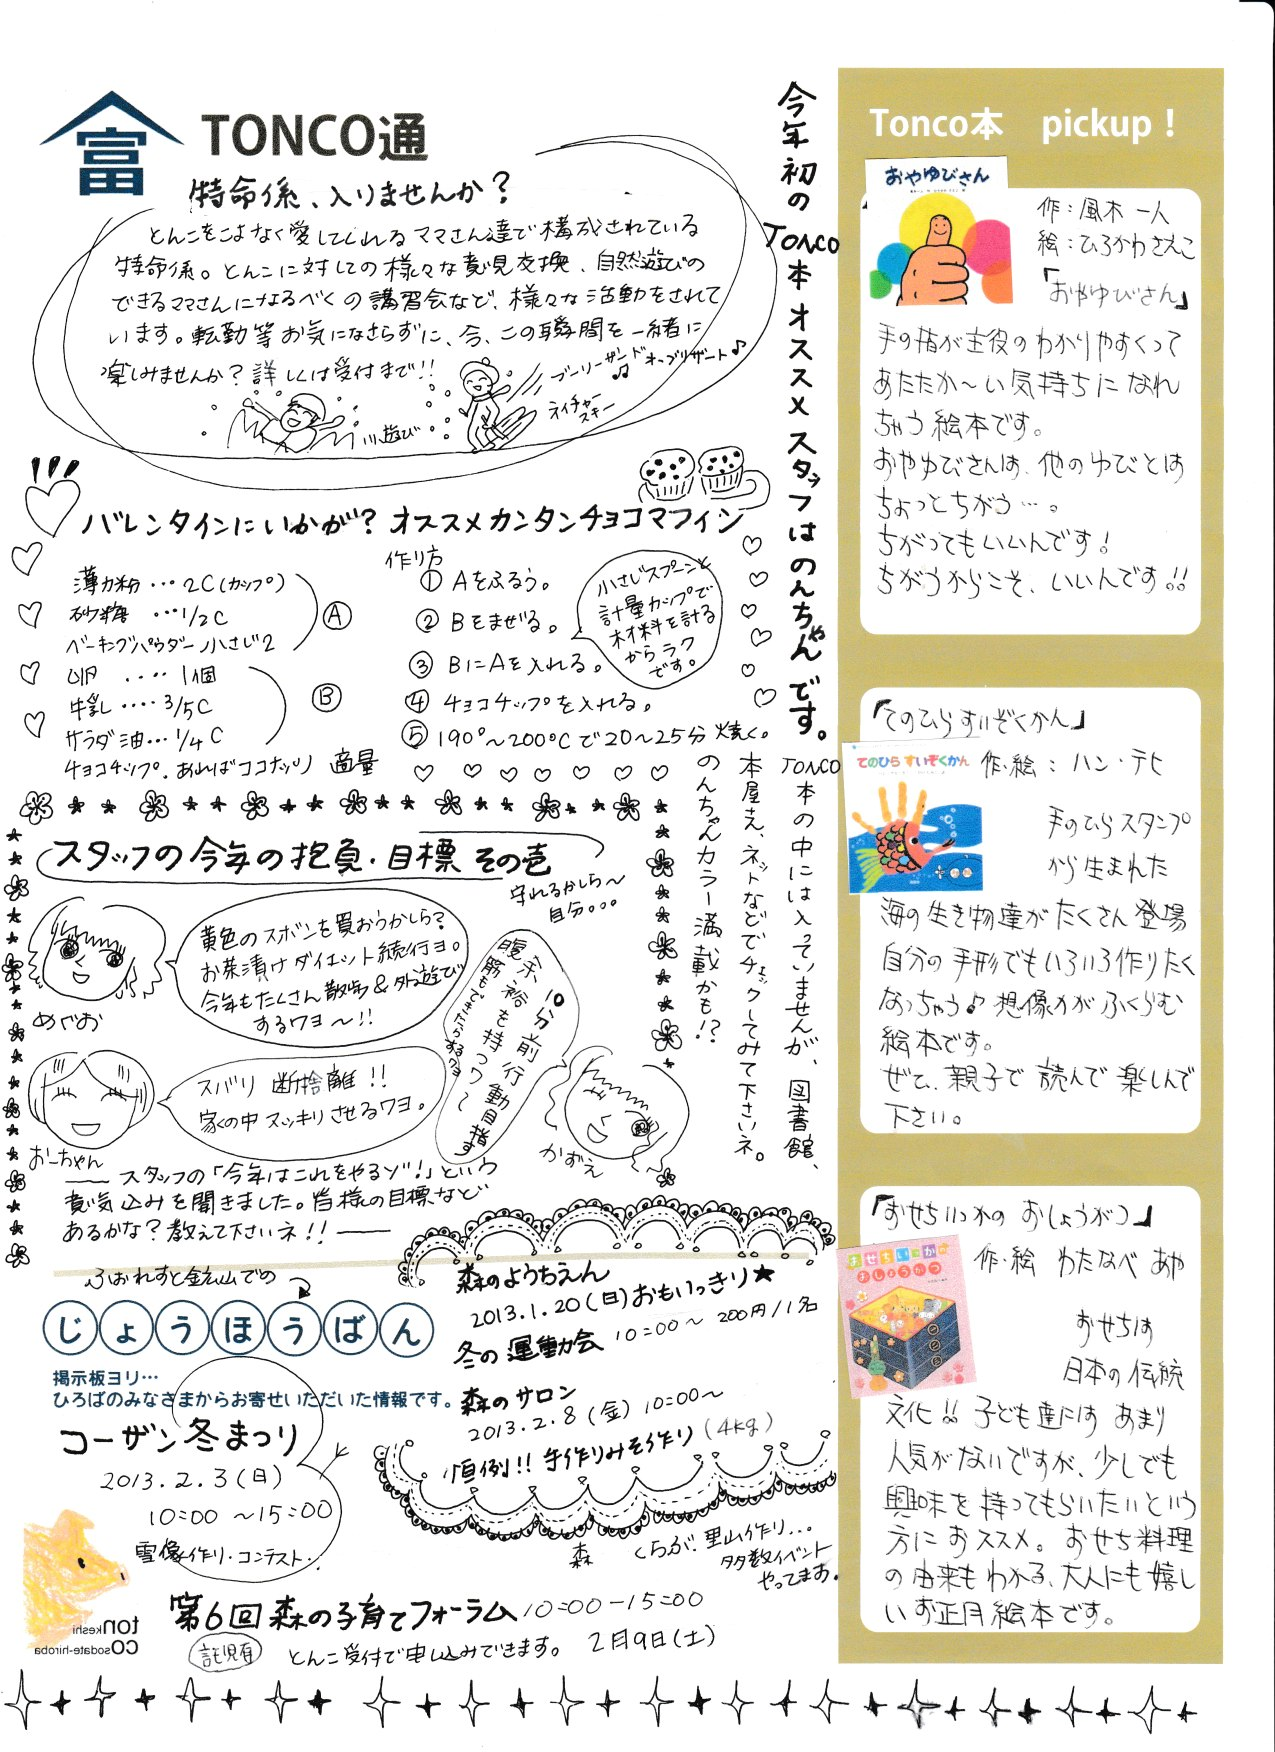 富
TONCO通
特命係、入りませんか?
とんこをこよなく愛してくれるママさん達で構成されている
特命係。とんこに対しての様々な意見交換、自然遊びの
できるママさんになるべくの講習会など、様々な活動をされて
います。転勤等お気になさらずに、今、この瞬間を一緒に
楽しみませんか?詳しくは受付まで!!
遊び
ネイチャー
スキー
バレンタインにいかが?オススメカンタンチョコマフィン
薄力粉…2C(カップ)
砂糖 …1/2C
ベーキングパウダー小さじ2
Ⓐ
卵 ‥‥1個
牛乳‥‥3/5C
サラダ油…1/4C
Ⓑ
チョコチップ、あればココナッツ 適量
作り方
① Aをふるう。
② Bをまぜる。
③ BにAを入れる。
④ チョコチップを入れる。
⑤ 190°〜200℃で20〜25分焼く。
小さじスプーンと
計量カップで
材料を計る
からラク
です。
スタッフの今年の抱負・目標 その壱
守れるかしら〜
自分。。。
黄色のズボンを買おうかしら?
お茶漬けダイエット続行ヨ。
今年もたくさん散歩&外遊び
するワヨ〜!!
めぐお
ズバリ 断捨離!!
家の中スッキリさせるワヨ。
おーちゃん
10分前行動目指す
余裕を持つワ〜
腹筋もできたらするワヨ
かずえ
スタッフの「今年はこれをやるゾ!」という
意気込みを聞きました。皆様の目標など
あるかな?教えて下さいネ!!
今年初のTONCO本オススメスタッフはのんちゃんです。
TONCO本の中には入っていませんが、図書館、
本屋さん、ネットなどでチェックしてみて下さいネ。
のんちゃんカラー満載かも!?
ふおれすと鉱山での
じょうほうばん
掲示板ヨリ…
ひろばのみなさまからお寄せいただいた情報です。
コーザン冬まつり
2013.2.3(日)
10:00 〜15:00
雪像作り・コンテスト・
森のようちえん
2013.1.20(日)おもいっきり★
冬の運動会 10:00〜 200円/1名
森のサロン
2013.2.8(金)10:00〜
恒例!!手作りみそ作り(4kg)
森 くらが、里山作り…
多数イベント
やってます。
第6回森の子育てフォーラム10:00-15:00
託児有 とんこ受付で申し込みできます。 2月9日(土)
tonkeshi
cosodate-hiroba
Tonco本 pickup!
おやゆびさん
作:風木 一人
絵:ひろかわさえこ
「おやゆびさん」
手の指が主役のわかりやすくって
あたたか〜い気持ちになれ
ちゃう絵本です。
おやゆびさんは、他のゆびとは
ちょっとちがう…。
ちがってもいいんです!
ちがうからこそ、いいんです!!
「てのひらすいぞくかん」
てのひら すいぞくかん
作・絵:ハン・テヒ
手のひらスタンプ
から生まれた
海の生き物達がたくさん登場
自分の手形でもいろいろ作りたく
なっちゃう♪想像力がふくらむ
絵本です。
ぜひ、親子で読んで楽しんで
下さい。
「おせちいっかの おしょうがつ」
おせちいっかの
おしょうがつ
作・絵 わたなべ あや
おせちは
日本の伝統
文化!!子ども達には あまり
人気がないですが、少しでも
興味を持ってもらいたいという
方におススメ。おせち料理
の由来もわかる、大人にも嬉し
いお正月絵本です。